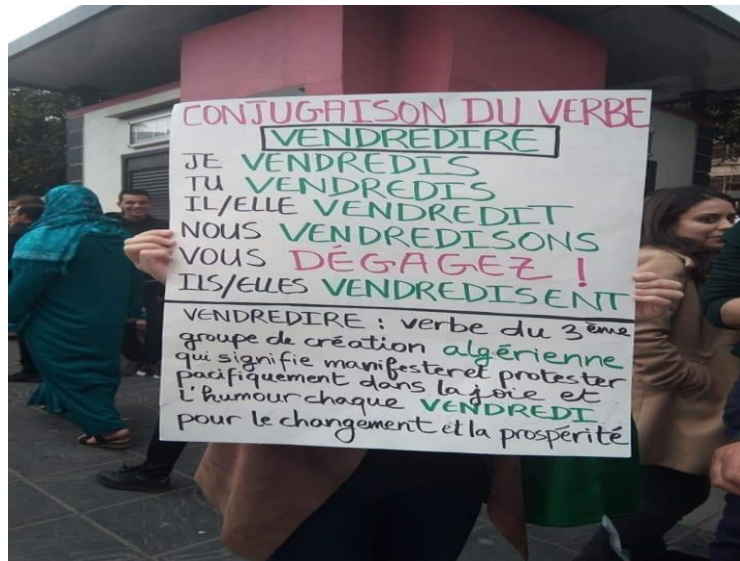 CONJUGAISON DU VERBE
VENDREDIRE
JE VENDREDIS
TU VENDREDIS
IL/ELLE VENDREDIT
NOUS VENDREDISONS
VOUS DÉGAGEZ !
ILS/ELLES VENDREDISENT
VENDREDIRE : verbe du 3ème
groupe de création algérienne
qui signifie manifester et protester
pacifiquement dans la joie et
l'humour chaque VENDREDI
pour le changement et la prospérité